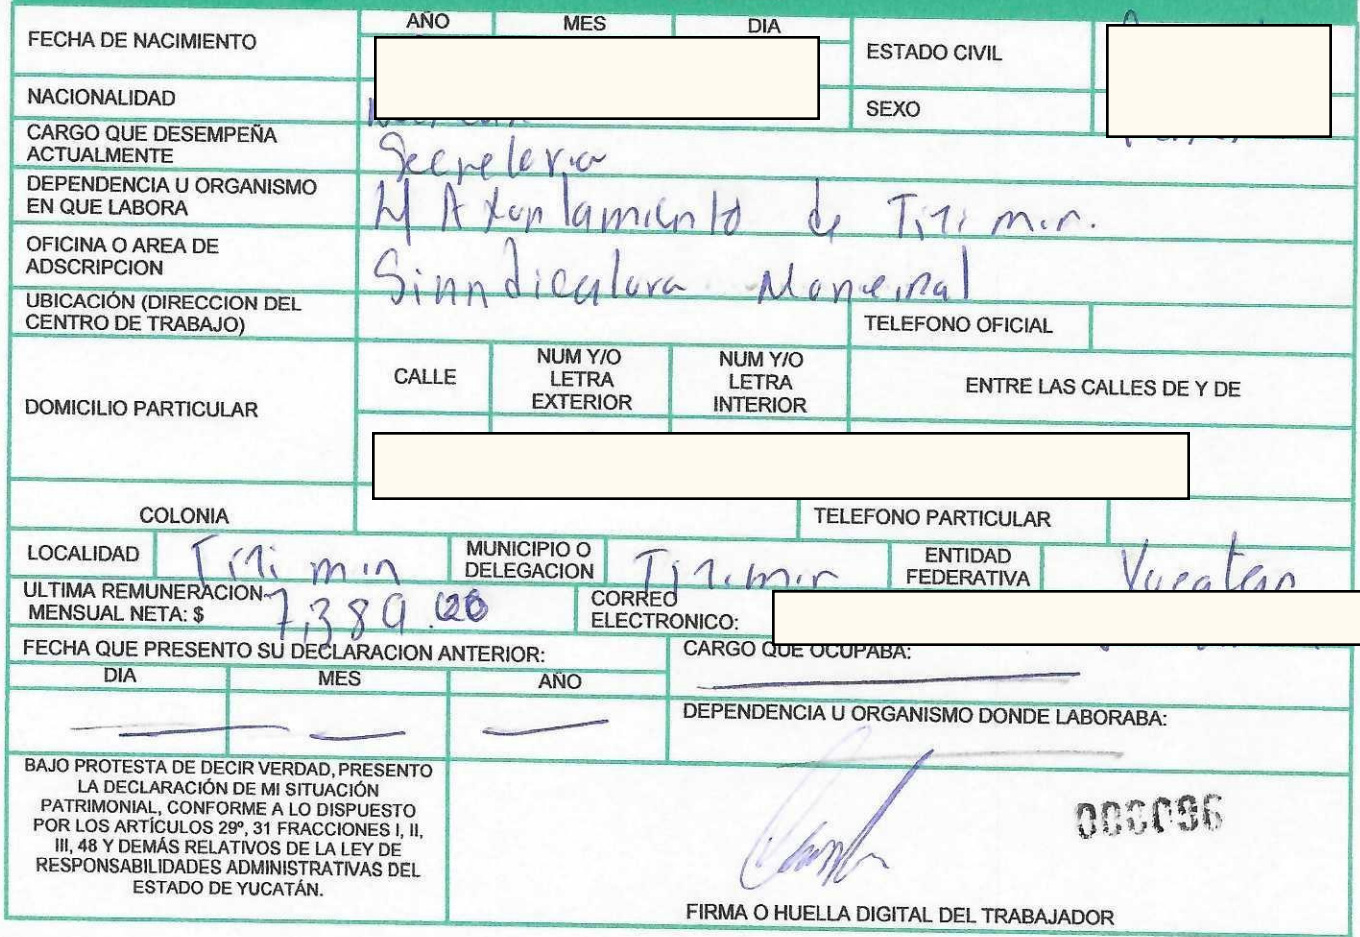 AÑO MES DIA
FECHA DE NACIMIENTO
ESTADO CIVIL
NACIONALIDAD
SEXO
CARGO QUE DESEMPEÑA
ACTUALMENTE
Secretaria
DEPENDENCIA U ORGANISMO
EN QUE LABORA
H Ayuntamiento de Tizimin.
OFICINA O AREA DE
ADSCRIPCION
Sinndicatura Municipal
UBICACIÓN (DIRECCION DEL
CENTRO DE TRABAJO)
TELEFONO OFICIAL
DOMICILIO PARTICULAR
CALLE
NUM Y/O
LETRA
EXTERIOR
NUM Y/O
LETRA
INTERIOR
ENTRE LAS CALLES DE Y DE
COLONIA
TELEFONO PARTICULAR
LOCALIDAD Tizimin
MUNICIPIO O
DELEGACION
Tizimin
ENTIDAD
FEDERATIVA
Yucatan
ULTIMA REMUNERACION
MENSUAL NETA: $ 7,389.
CORREO
ELECTRONICO:
FECHA QUE PRESENTO SU DECLARACION ANTERIOR:
CARGO QUE OCUPABA:
DIA MES AÑO
DEPENDENCIA U ORGANISMO DONDE LABORABA:
BAJO PROTESTA DE DECIR VERDAD, PRESENTO
LA DECLARACIÓN DE MI SITUACIÓN
PATRIMONIAL, CONFORME A LO DISPUESTO
POR LOS ARTÍCULOS 29º, 31 FRACCIONES I, II,
III, 48 Y DEMÁS RELATIVOS DE LA LEY DE
RESPONSABILIDADES ADMINISTRATIVAS DEL
ESTADO DE YUCATÁN.
000096
FIRMA O HUELLA DIGITAL DEL TRABAJADOR